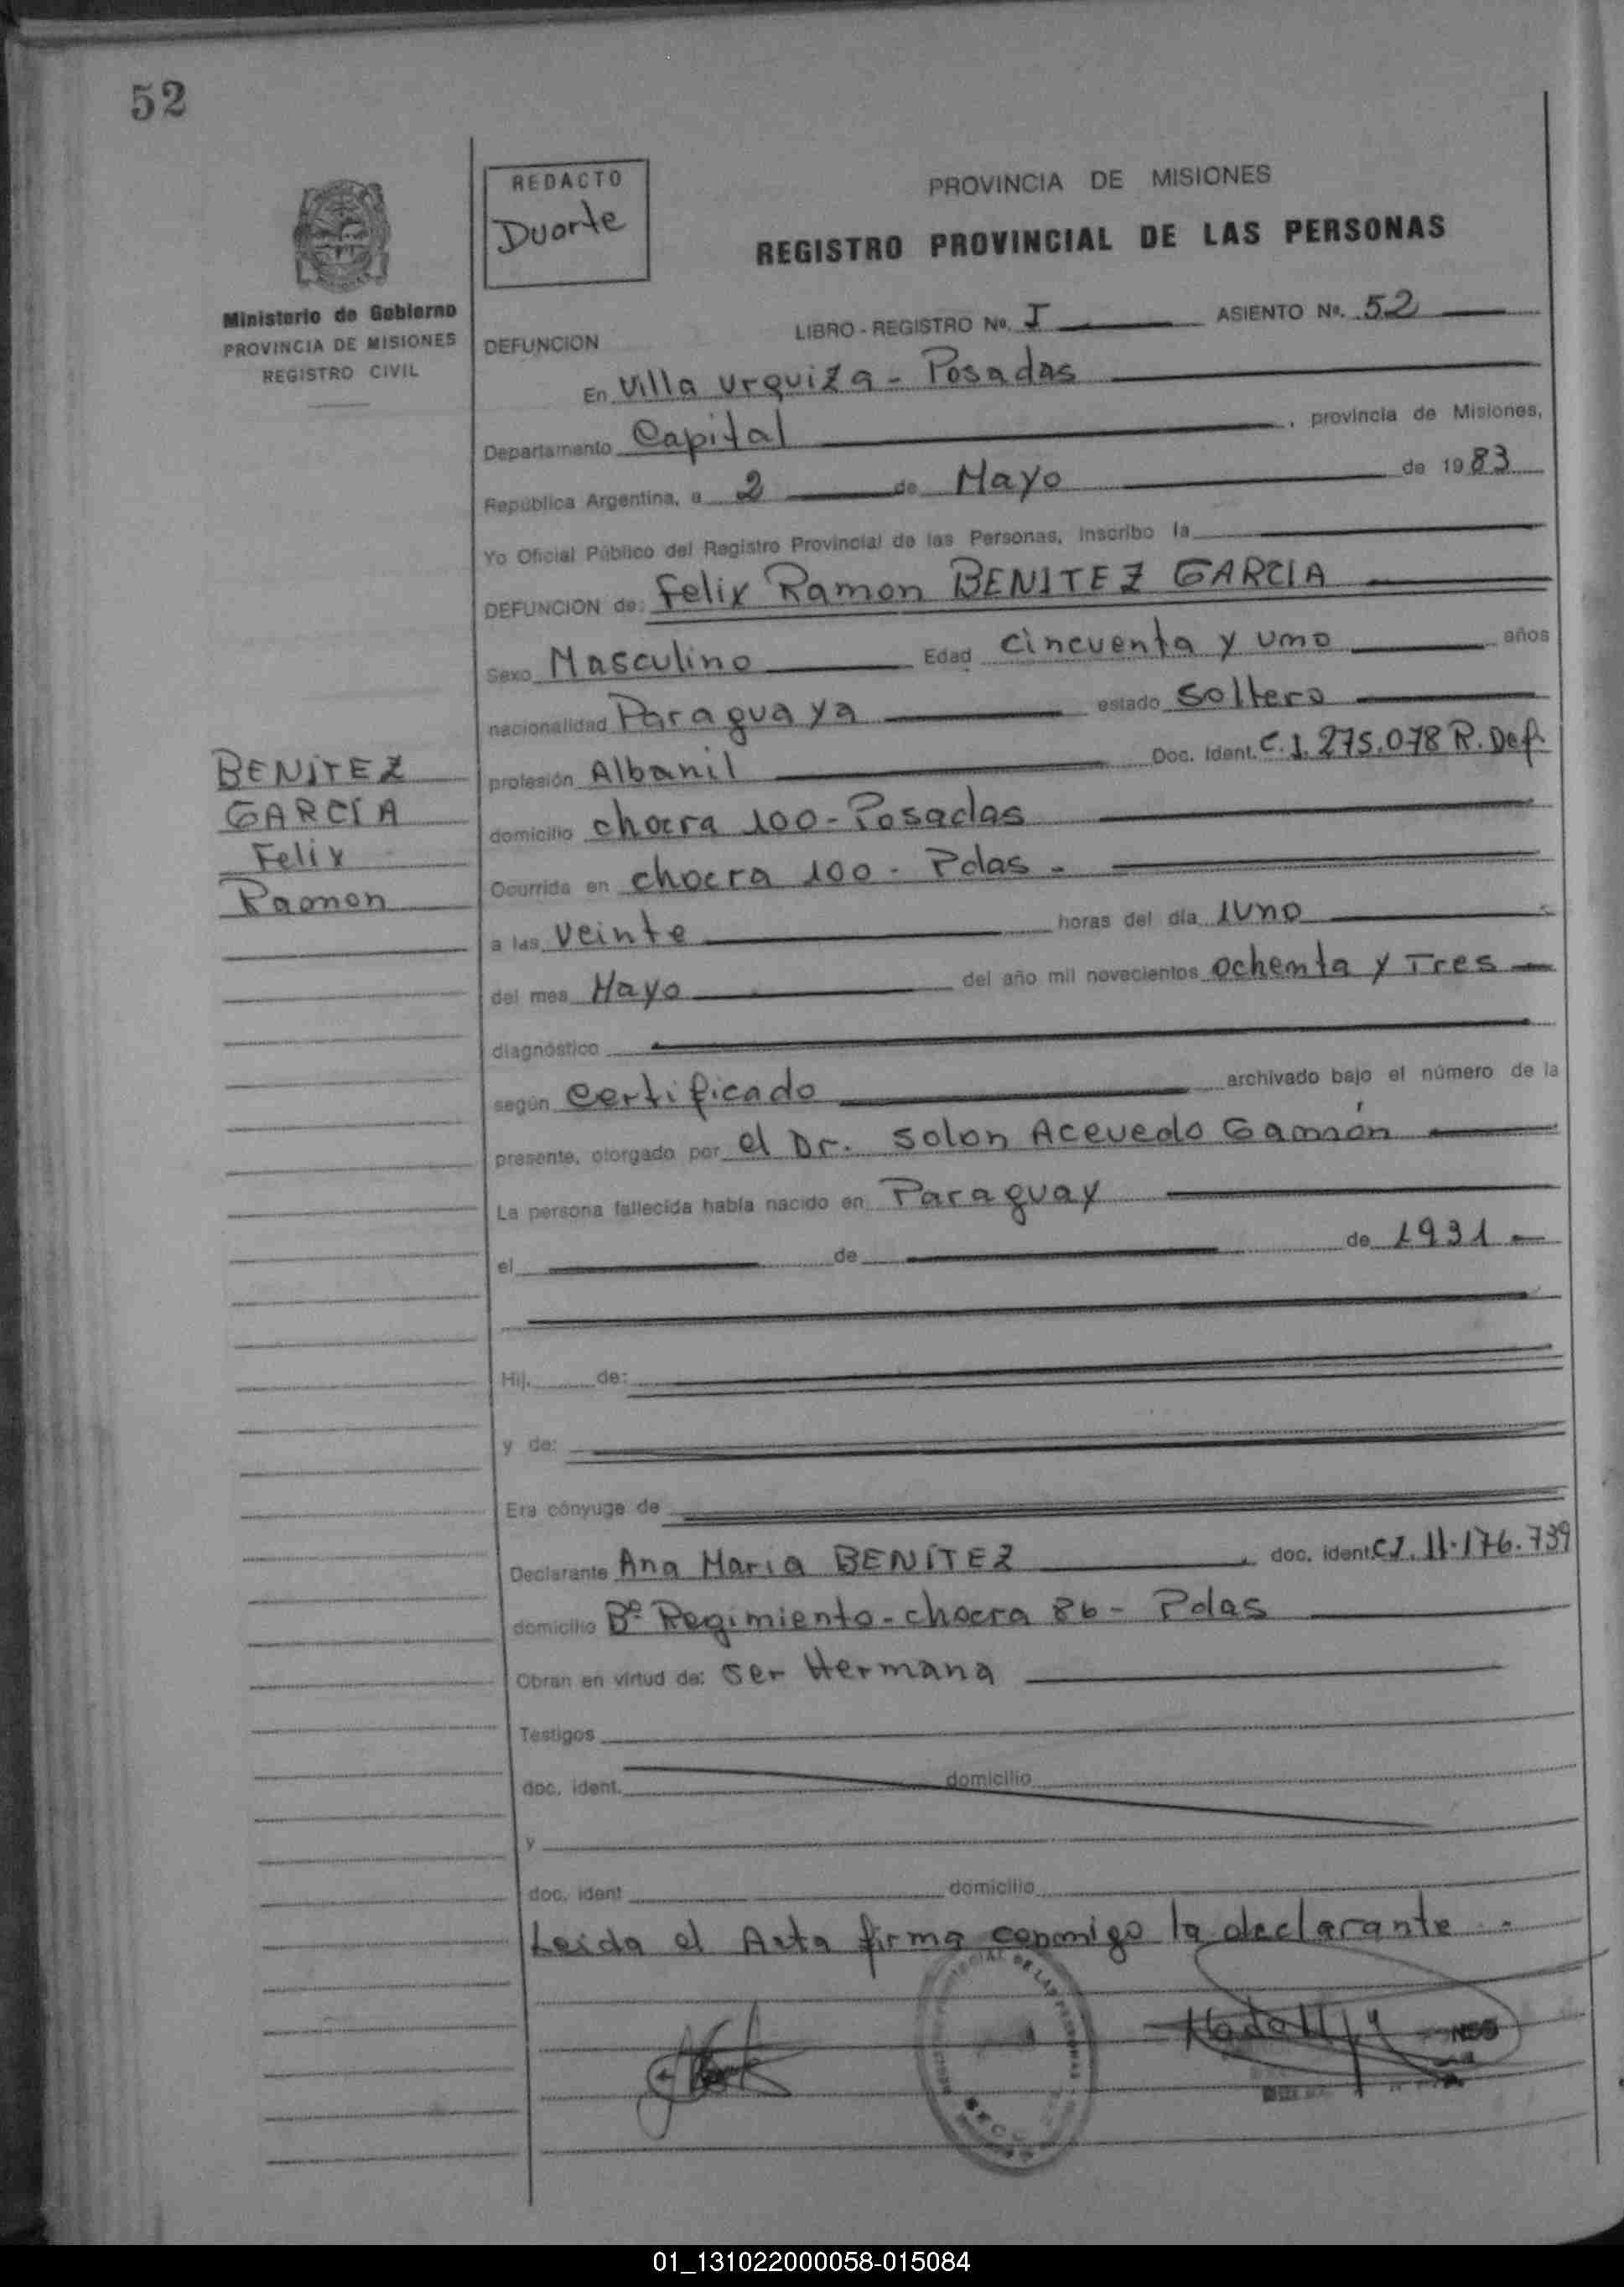 52
REDACTO
Duarte
PROVINCIA DE MISIONES
REGISTRO PROVINCIAL DE LAS PERSONAS
Ministerio de Gobierno
PROVINCIA DE MISIONES
REGISTRO CIVIL
DEFUNCION LIBRO - REGISTRO No. I ASIENTO No. 52
En Villa Urquiza - Posadas
Departamento Capital , provincia de Misiones,
República Argentina, a 2 de Mayo de 1983
Yo Oficial Público del Registro Provincial de las Personas, inscribo la
DEFUNCION de: Felix Ramon BENITEZ GARCIA
Sexo Masculino Edad cincuenta y uno años
nacionalidad Paraguaya estado soltero
profesión Albanil Doc. Ident. C.I. 275.078 R. Def.
BENITEZ
GARCÍA
Felix
Ramon
domicilio chacra 100 - Posadas
Ocurrida en chacra 100 - Pdas -
a las veinte horas del día 1uno
del mes Mayo del año mil novecientos ochenta y Tres
diagnóstico
según certificado archivado bajo el número de la
presente, otorgado por el Dr. Solon Acevedo
La persona fallecida había nacido en Paraguay
el de de 1931
Hij. de:
y de:
Era cónyuge de
Declarante Ana Maria BENÍTEZ , doc. ident. CI. 11.176.739
domicilio Bº Regimiento - chacra 86 - Pdas
Obran en virtud de: ser Hermana
Testigos
doc. ident. domicilio
y
doc. ident domicilio
Leida el Acta firma conmigo la declarante -
DE LAS PERSONAS
01_131022000058-015084